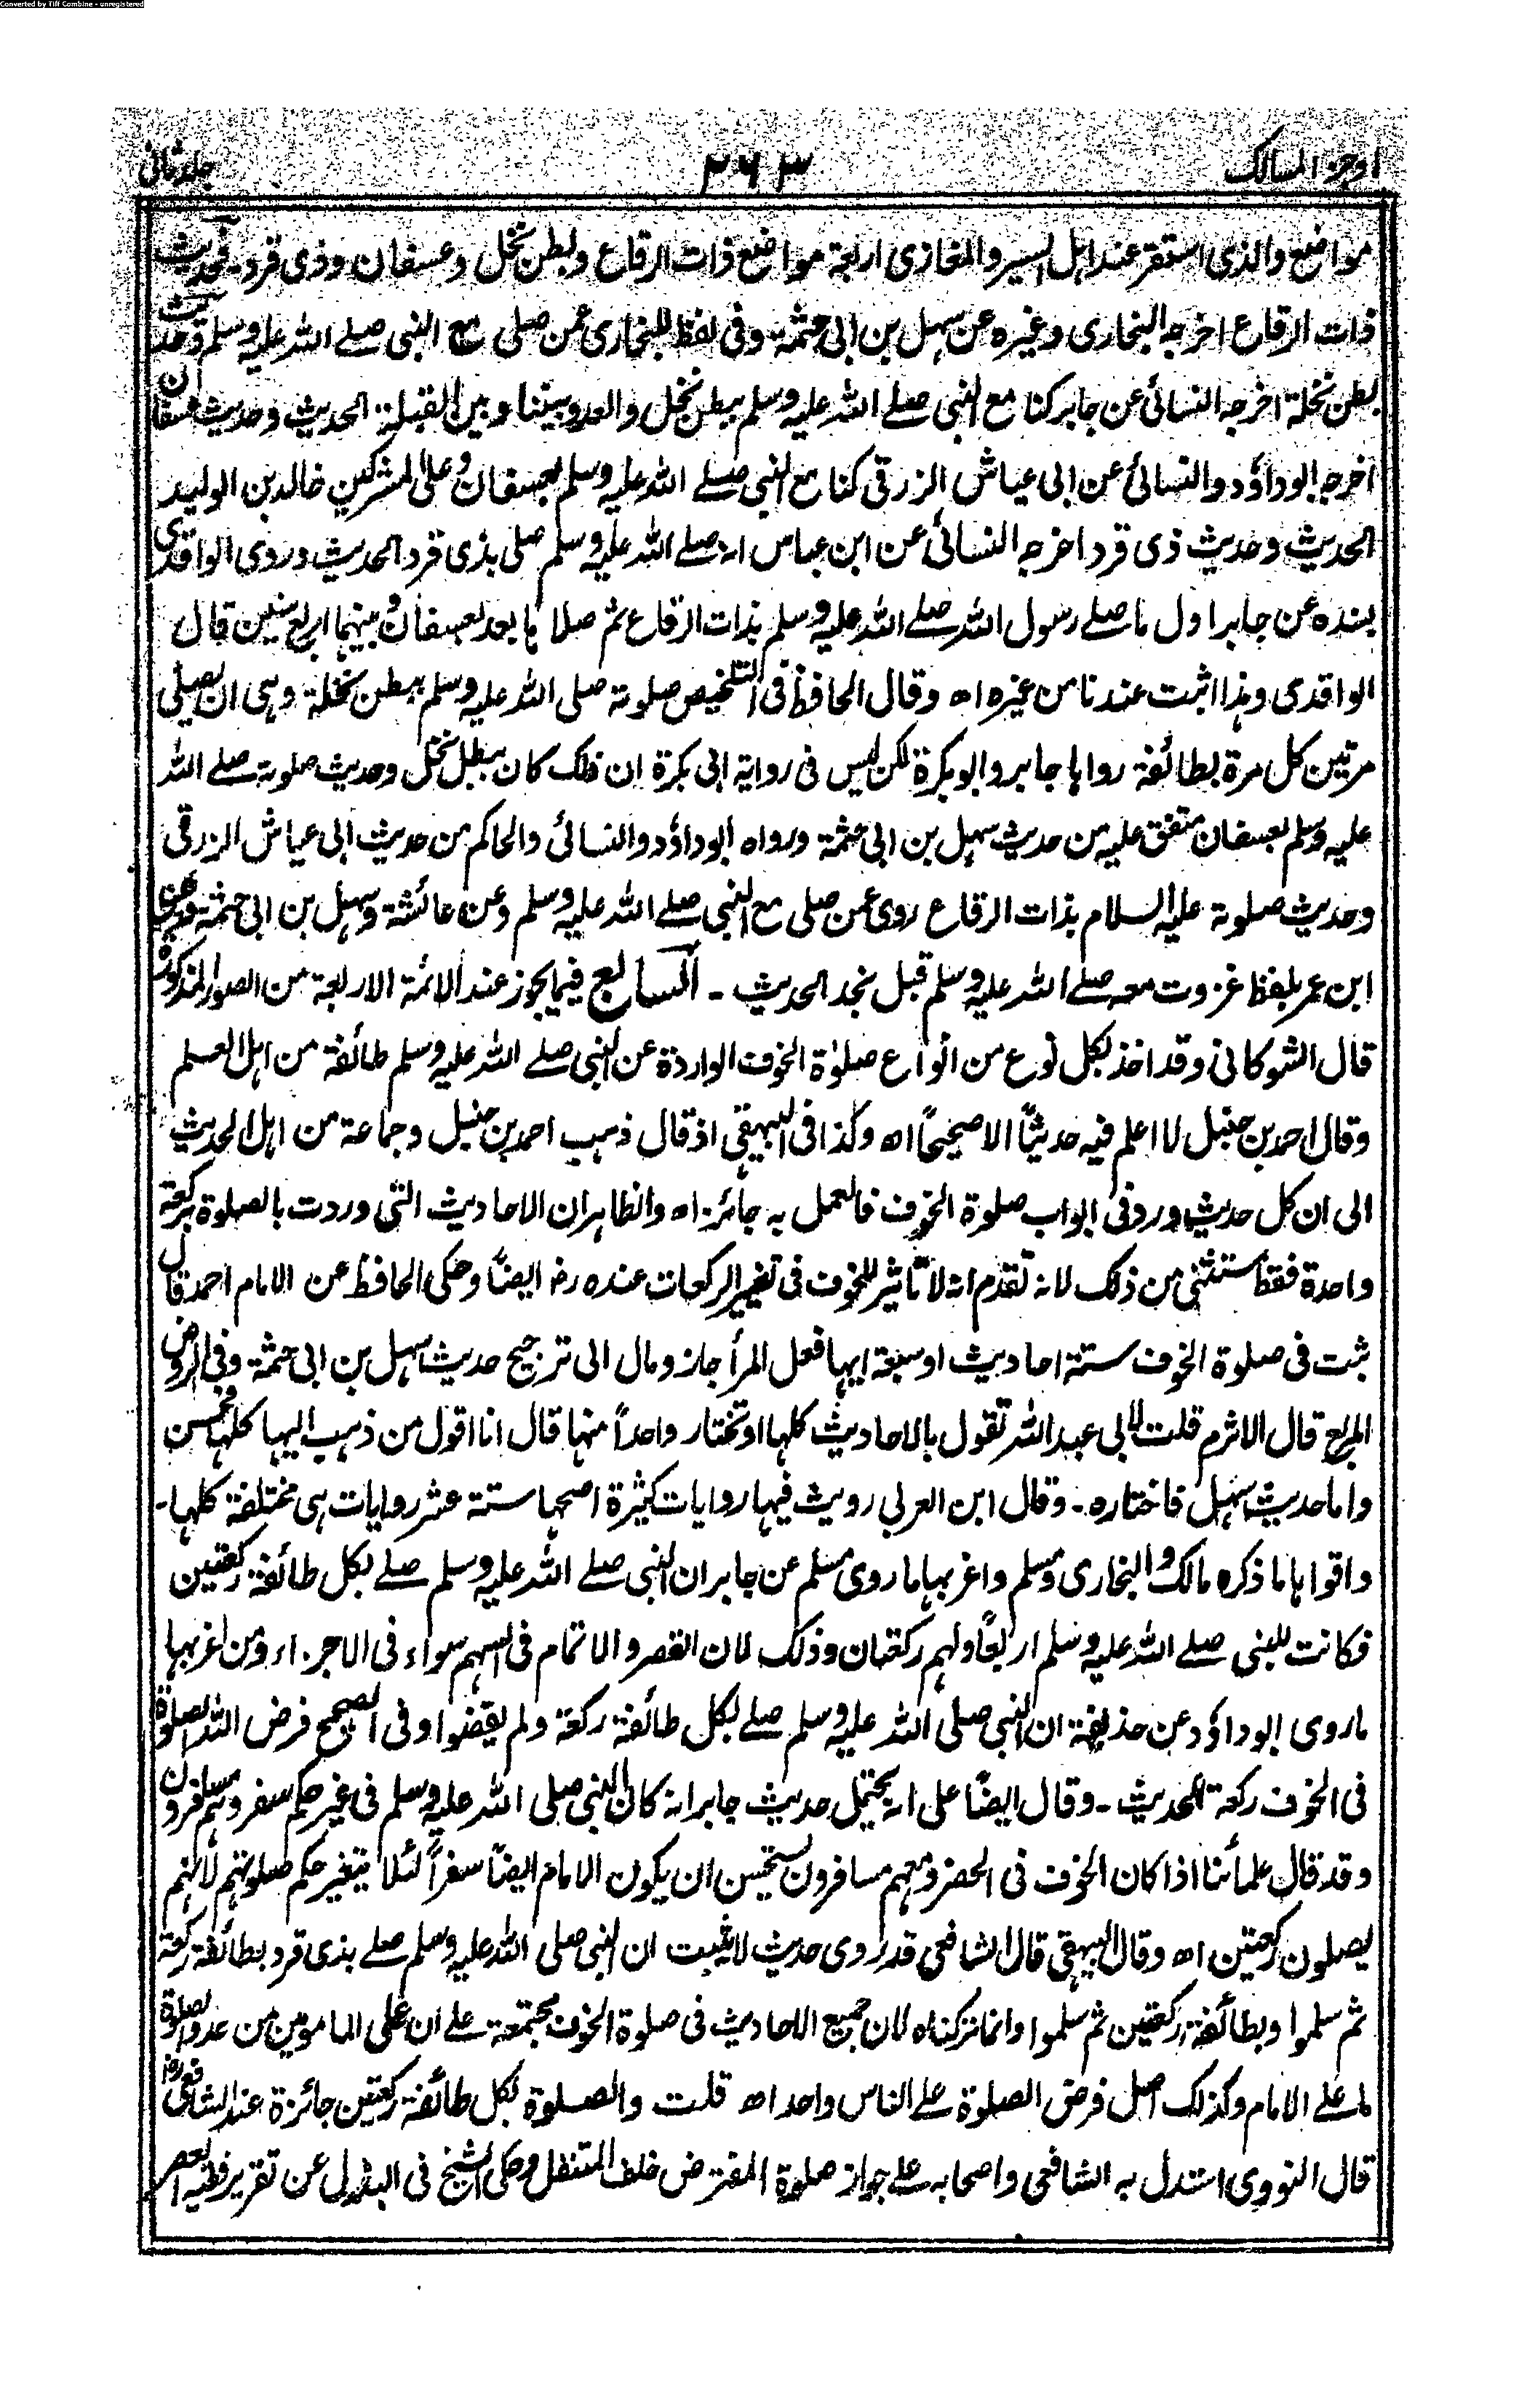 Converted by Tiff Combine - unregistered
اوجز المسالك
٢٦٣
جلد ثانی
مواضع والذی استقر عند اہل السیر والمغازی اربعۃ مواضع ذات الرقاع وبطن نخل وعسفان وذی قرد۔ فحدیث
ذات الرقاع اخرجہ البخاری وغیرہ عن سہل بن ابی حثمۃ وفی لفظ للبخاری عمن صلی مع النبی صلے اللہ علیہ وسلم وحدیث
بطن نخلۃ اخرجہ النسائی عن جابر کنا مع النبی صلے اللہ علیہ وسلم ببطن نخل والعدو بیننا وبین القبلۃ الحدیث وحدیث عسفان
اخرجہ ابوداؤد والنسائی عن ابی عیاش الزرقی کنا مع النبی صلے اللہ علیہ وسلم بعسفان وعلی المشرکین خالد بن الولید
الحدیث وحدیث ذی قرد اخرجہ النسائی عن ابن عباس انہ صلے اللہ علیہ وسلم صلی بذی قرد الحدیث وروی الواقدی
بسندہ عن جابر اول ما صلے رسول اللہ صلے اللہ علیہ وسلم بذات الرقاع ثم صلاہا بعد بعسفان وبینہما اربع سنین قال
الواقدی وہذا اثبت عندنا من غیرہ اھ وقال الحافظ فی التلخیص صلوتہ صلی اللہ علیہ وسلم ببطن نخلۃ وہی ان یصلی
مرتین کل مرۃ بطائفۃ رواہا جابر وابوبکرۃ لکن لیس فی روایۃ ابی بکرۃ ان ذلک کان ببطن نخل وحدیث صلوتہ صلے اللہ
علیہ وسلم بعسفان متفق علیہ من حدیث سہل بن ابی حثمۃ ورواہ ابوداؤد والنسائی والحاکم من حدیث ابی عیاش الزرقی
وحدیث صلوتہ علیہ السلام بذات الرقاع روی عمن صلی مع النبی صلے اللہ علیہ وسلم وعن عائشۃ وسہل بن ابی حثمۃ وعن
ابن عمر بلفظ غزوت معہ صلے اللہ علیہ وسلم قبل نجد الحدیث ۔ السابع فیما یجوز عند الائمۃ الاربعۃ من الصور المذکورۃ
قال الشوکانی وقد اخذ بکل نوع من انواع صلوٰۃ الخوف الواردۃ عن النبی صلے اللہ علیہ وسلم طائفۃ من اہل العلم
وقال احمد بن حنبل لا اعلم فیہ حدیثاً الا صحیحاً اھ وکذا فی البیہقی اذ قال ذہب احمد بن حنبل وجماعۃ من اہل الحدیث
الی ان کل حدیث ورد فی ابواب صلوۃ الخوف فالعمل بہ جائز اھ والظاہر ان الاحادیث التی وردت بالصلوۃ برکعۃ
واحدۃ فقط مستثنی من ذلک لانہ تقدم انہ لا تاثیر للخوف فی تغییر الرکعات عندہ رض ایضاً وحکی الحافظ عن الامام احمد قال
ثبت فی صلوۃ الخوف ستۃ احادیث او سبعۃ ایہا فعل المرأ جاز ومال الی ترجیح حدیث سہل بن ابی حثمۃ وفی الروض
المربع قال الاثرم قلت لابی عبد اللہ تقول بالاحادیث کلہا او تختار واحداً منہا قال انا اقول من ذہب الیہا کلہا فحسن
واما حدیث سہل فاختارہ۔ وقال ابن العربی رویت فیہا روایات کثیرۃ اصحہا ستۃ عشر روایات ہی مختلفۃ کلہا۔
واقواہا ما ذکرہ مالک والبخاری ومسلم واغربہا ما روی مسلم عن جابر ان النبی صلے اللہ علیہ وسلم صلے بکل طائفۃ رکعتین
فکانت للنبی صلے اللہ علیہ وسلم اربعاً ولہم رکعتان وذلک لان القصر والاتمام فی السہم سواء فی الاجزاء ومن اغربہا
ما روی ابوداؤد عن حذیفۃ ان النبی صلی اللہ علیہ وسلم صلے بکل طائفۃ رکعۃ ولم یقضوا وفی الصحیح فرض اللہ الصلوۃ
فی الخوف رکعۃ الحدیث ۔ وقال ایضاً علی انہ یحتمل حدیث جابر انہ کان النبی صلی اللہ علیہ وسلم فی غیر حکم سفر وہم مسافرون
وقد قال علمائنا اذا کان الخوف فی الحضر ومعہم مسافرون یستحسن ان یکون الامام ایضاً سفراً لئلا یتغیر حکم صلوتہم لانہم
یصلون رکعتین اھ وقال البیہقی قال الشافعی قد روی حدیث لا یثبت ان النبی صلی اللہ علیہ وسلم صلے بذی قرد بطائفۃ رکعۃ
ثم سلموا وبطائفۃ رکعتین ثم سلموا وانما ترکناہ لان جمیع الاحادیث فی صلوۃ الخوف مجتمعۃ علے ان علی المامومین من عدد الصلوۃ
ما علے الامام وکذلک اصل فرض الصلوۃ علے الناس واحد اھ قلت والصلوۃ لکل طائفۃ رکعتین جائزۃ عند الشافعی رح
قال النووی استدل بہ الشافعی واصحابہ علے جواز صلوۃ المفترض خلف المتنفل وحکی الشیخ فی البذل عن تقریر فقیہ العصر